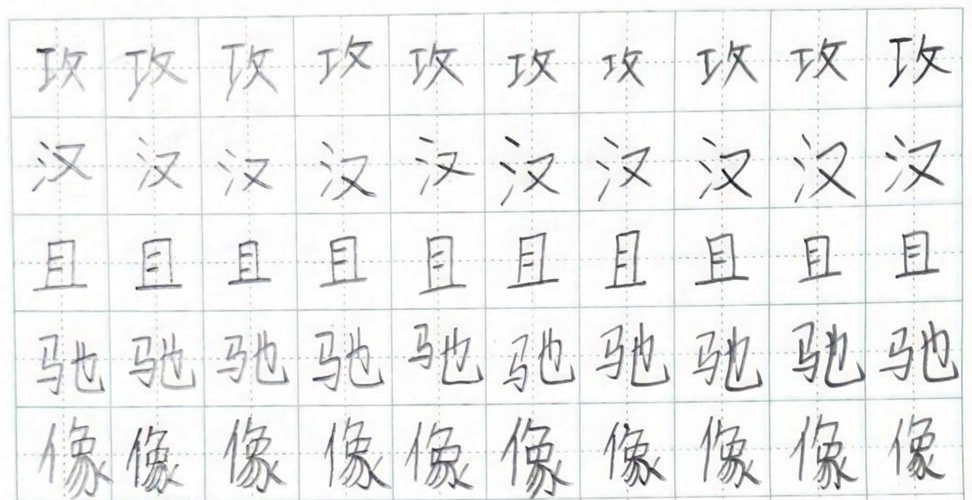 攻攻攻攻攻攻攻攻攻攻
汉汉汉汉汉汉汉汉汉汉
且且且且且且且且且且
驰驰驰驰驰驰驰驰驰驰
像像像像像像像像像像